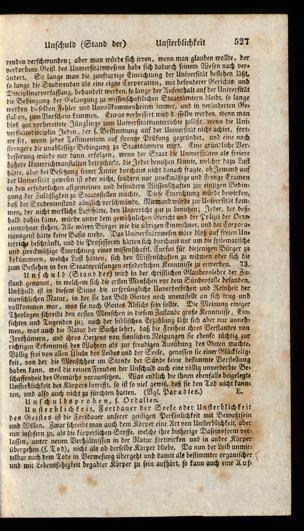 Unschuld (Stand der) Unsterblichkeit 527
renden verschwunden; aber man würde sich irren, wenn man glauben wollte, der
verdorbene Geist des Universitätswesens habe sich dadurch seinem Wesen nach ver-
ändert. So lange man die zunftartige Einrichtung der Universität bestehen läßt,
so lange die Studenten als eine eigne Corporation, mit besonderer Gerichts- und
Disciplinarverfassung, beibehalten werden, so lange der Aufenthalt auf der Universität
die Bedingung der Gelangung zu wissenschaftlichen Staatsämtern bleibt, so lange
werden dieselben Fehler und Unvollkommenheiten immer, und in veränderten Ge-
stalten, zum Vorschein kommen. Etwas verbessert wird es selbst werden, wenn man
bloß gut vorbereitete Jünglinge zum Universitätsunterricht zuläßt, wenn die Uni-
versitätsdisciplin Jeden, der s. Bestimmung auf der Universität nicht achtet, fort-
weist, wenn jedes Testimonium auf strenge Prüfung gegründet, und eine noch
strengere die unmäßige Zulassung zu Staatsämtern wird. Eine gründliche Ver-
besserung würde nur dann erfolgen, wenn der Staat die Universitäten als freiere
höhere Unterrichtsanstalten betrachtete, die Jeder benutzen könnte, welcher dazu Lust
hätte, aber bei Besetzung seiner Ämter durchaus nicht danach fragte, ob Jemand auf
der Universität gewesen ist oder nicht, sondern nur zweckmäßige und strenge Examen
in den erforderlichen allgemeinen und besondern Wissenschaften zur einzigen Bedin-
gung der Zulässigkeit zu Staatsstellen machte. Diese Einrichtung würde bewirken,
daß der Studentenstand gänzlich verschwände. Niemand würde zur Universität kom-
men, der nicht wirkliche Lust hätte, den Unterricht gut zu benutzen; Jeder, der deß-
halb dahin käme, würde unter dem gewöhnlichen Gericht und der Polizei der Orts-
einwohner stehen. Alle wären Bürger wie die übrigen Einwohner, und der Corpora-
tionsgeist hätte keine Basis mehr. Das Universitätswesen wäre bloß auf freien Un-
terricht beschränkt, und die Professoren hätten sich durchaus nur um die systematische
und zweckmäßige Einrichtung eines wissenschaftl. Cursus für diejenigen Bürger zu
bekümmern, welche Lust hätten, sich den Wissenschaften zu widmen oder sich die
zum Bestehen in den Staatsprüfungen erforderlichen Kenntnisse zu erwerben. TB.
Unschuld (Stand der) wird in der christlichen Glaubenslehre der Zu-
stand genannt, in welchem sich die ersten Menschen vor dem Sündenfalle befanden.
Unschuld ist in diesem Sinne die ursprüngliche Unverdorbenheit und Reinheit der
menschlichen Natur, in der sie das Bild Gottes noch unentstellt an sich trug und
vollkommen war, was sie nach Gottes Absicht sein sollte. Die Meinung einiger
Theologen schreibt den ersten Menschen in diesem Zustande große Kenntnisse, Ein-
sichten und Tugenden zu; nach der biblischen Erzählung läßt sich aber nur anneh-
men, was auch die Natur der Sache lehrt, daß die Freiheit ihres Verstandes von
Irrthümern, und ihres Herzens von sinnlichen Neigungen sie ebenso tüchtig zur
richtigen Erkenntniß des Wahren als zur freudigen Ausübung des Guten machte.
Völlig frei von allen Übeln des Leibes und der Seele, genossen sie einer Glückselig-
keit, von der die Menschheit im Stande der Sünde keine bestimmte Vorstellung
haben kann, weil die reinen Freuden der Unschuld auch eine völlig unverdorbene Be-
schaffenheit des Gemüths voraussetzen. Was endlich die ihnen ebenfalls beigelegte
Unsterblichkeit des Körpers betrifft, so ist so viel gewiß, daß sie den Tod nicht kann-
ten, und also auch nicht zu fürchten hatten. (Vgl. Paradies.) E.
Unschuldsproben, s. Ordalien.
Unsterblichkeit, Fortdauer der Seele oder Unsterblichkeit
des Geistes ist die Fortdauer unserer geistigen Persönlichkeit mit Bewußtsein
und Willen. Zwar schreibt man auch dem Körper eine Art von Unsterblichkeit, aber
nur insofern zu, als die körperlichen Stoffe, welche ihre bisherige Daseinsform ver-
lassen, unter neuen Verhältnissen in der Natur fortwirken und in andre Körper
übergehen (s. Tod), nicht als ob derselbe Körper bliebe. Da nun der Leib unmit-
telbar nach dem Tode in Verwesung übergeht und damit als bestimmter organischer
und mit Lebensfähigkeit begabter Körper zu sein aufhört, so kann auch eine Auf-